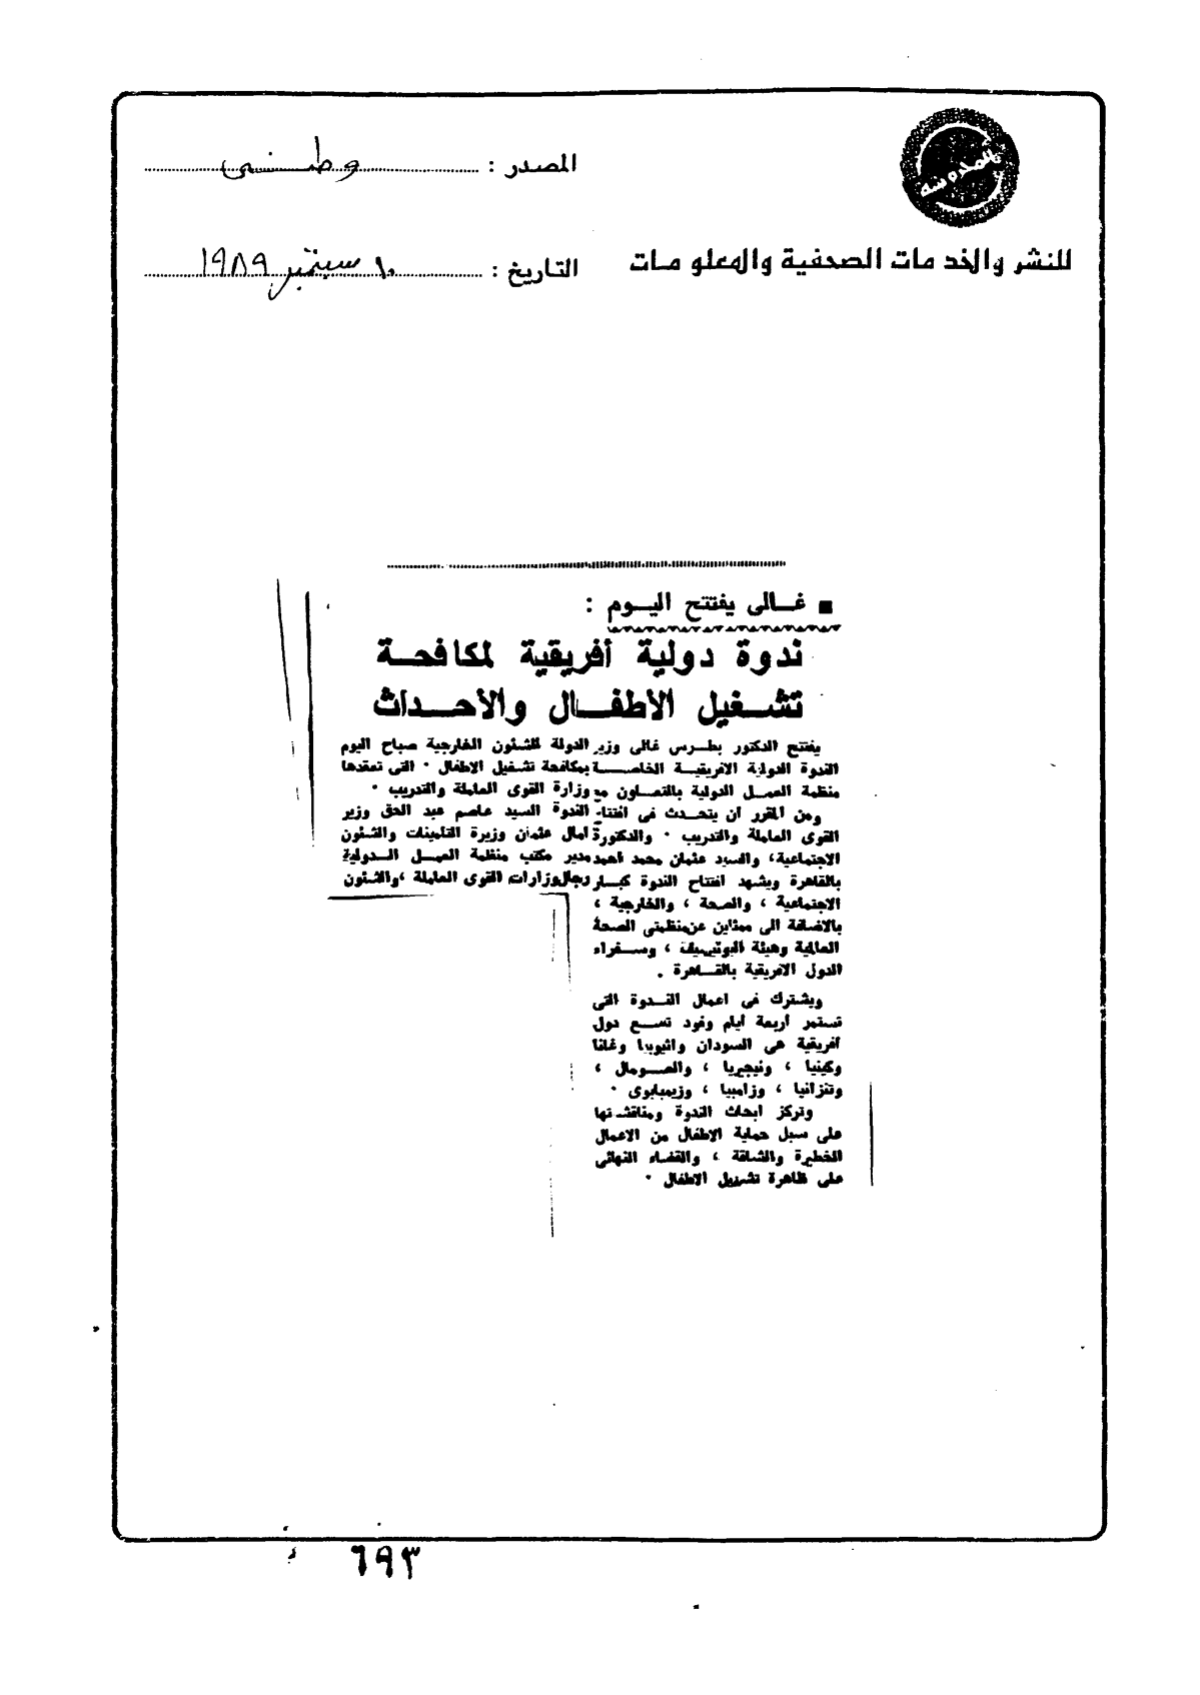 المحروسة
للنشر والخدمات الصحفية والمعلومات
المصدر : وطنى
التاريخ : ١٠ سبتمبر ١٩٨٩
■ غالى يفتتح اليوم :
ندوة دولية أفريقية لمكافحة
تشغيل الأطفال والأحداث
يفتتح الدكتور بطرس غالى وزير الدولة للشئون الخارجية صباح اليوم
الندوة الدولية الافريقية الخاصة بمكافحة تشغيل الاطفال ٠ التى تعقدها
منظمة العمل الدولية بالتعاون مع وزارة القوى العاملة والتدريب ٠
ومن المقرر ان يتحدث فى افتتاح الندوة السيد عاصم عبد الحق وزير
القوى العاملة والتدريب ٠ والدكتورة امال عثمان وزيرة التأمينات والشئون
الاجتماعية، والسيد عثمان محمد احمد مدير مكتب منظمة العمل الدولية
بالقاهرة ويشهد افتتاح الندوة كبار رجال وزارات القوى العاملة ، والشئون
الاجتماعية ، والصحة ، والخارجية ،
بالاضافة الى ممثلين عن منظمتى الصحة
العالمية وهيئة اليونيسيف ، وسفراء
الدول الافريقية بالقاهرة .
ويشترك فى اعمال الندوة التى
تستمر أربعة أيام وفود تسع دول
أفريقية هى السودان واثيوبيا وغانا
وكينيا ، ونيجيريا ، والصومال ،
وتنزانيا ، وزامبيا ، وزيمبابوى ٠
وتركز ابحاث الندوة ومناقشتها
على سبل حماية الاطفال من الاعمال
الخطيرة والشاقة ، والقضاء النهائى
على ظاهرة تشغيل الاطفال ٠
٦٩٣